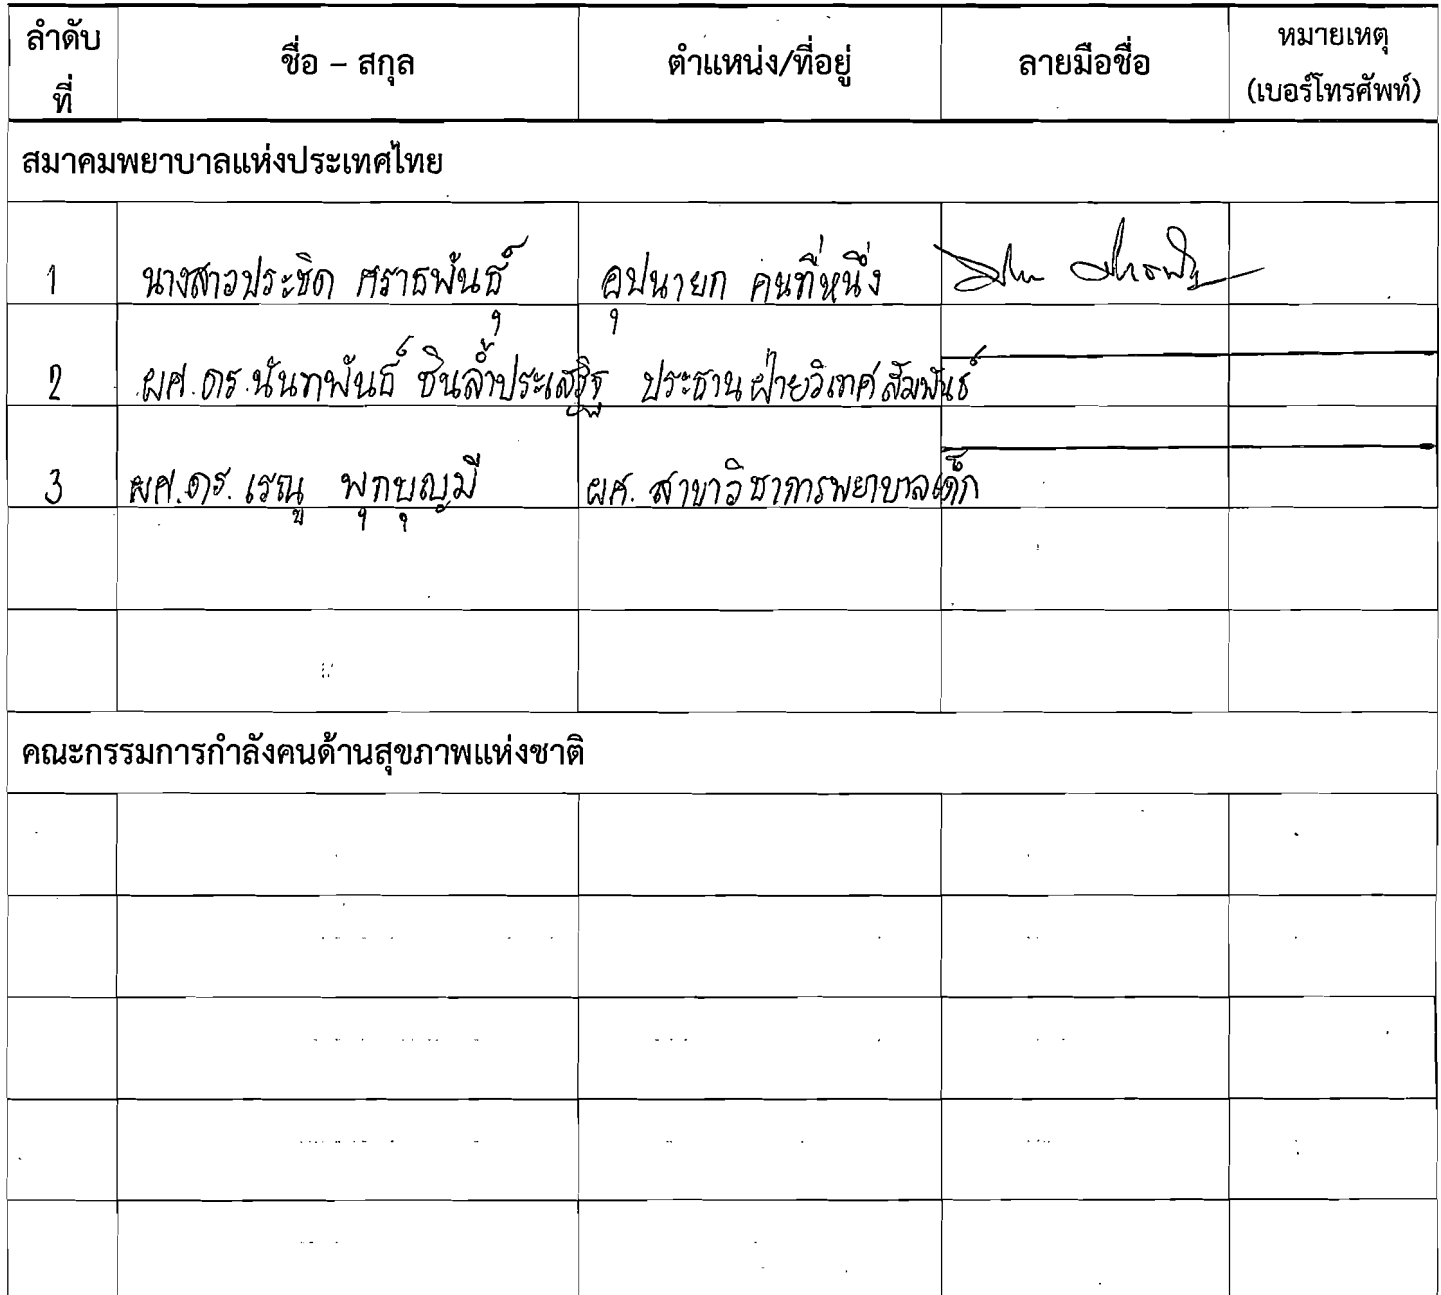 ลำดับที่ ชื่อ – สกุล ตำแหน่ง/ที่อยู่ ลายมือชื่อ หมายเหตุ (เบอร์โทรศัพท์)
สมาคมพยาบาลแห่งประเทศไทย
1 นางสาวประชิด ศราธพันธุ์ อุปนายก คนที่หนึ่ง
2 ผศ.ดร.นันทพันธ์ ชินล้ำประเสริฐ ประธานฝ่ายวิเทศสัมพันธ์
3 ผศ.ดร. เรณู พุกบุญมี ผศ. สาขาวิชาการพยาบาลเด็ก
คณะกรรมการกำลังคนด้านสุขภาพแห่งชาติ